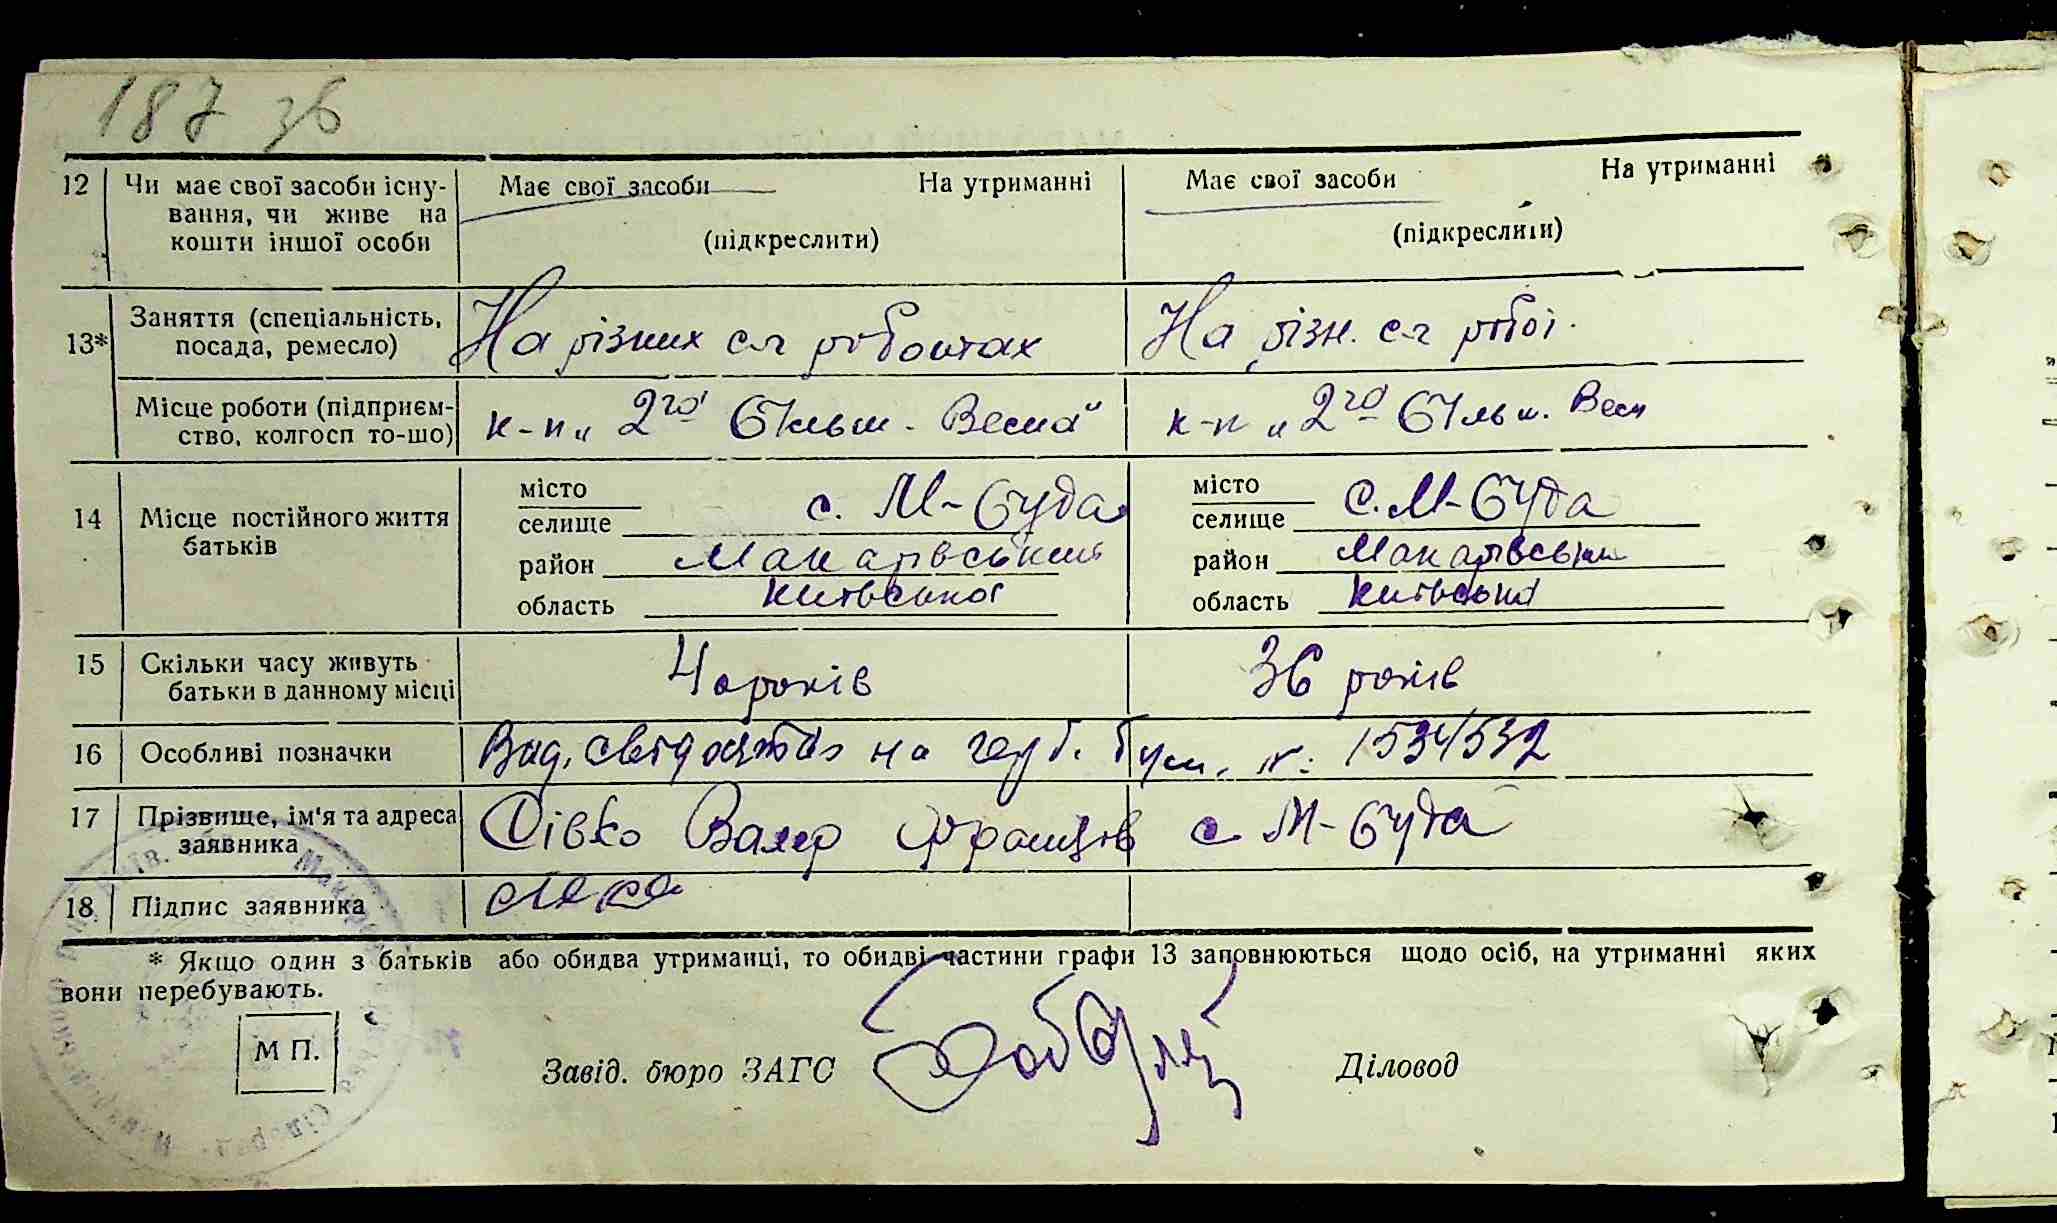 187 зв
12 Чи має свої засоби існу- Має свої засоби На утриманні Має свої засоби На утриманні
вання, чи живе на
кошти іншої особи (підкреслити) (підкреслити)
13* Заняття (спеціальність, На різних с-г роботах На різн. с-г робот
посада, ремесло)
Місце роботи (підприєм- к-п „2га більш. Весна" к-п „2га більш. Весн
ство, колгосп то-що)
14 Місце постійного життя місто с. М-Буда місто с. М-Буда
батьків селище селище
район Макарівський район Макарівськи
область Київської область Київської
15 Скільки часу живуть 40 років 36 років
батьки в данному місці
16 Особливі позначки Вид. свідоцтво на герб. бум. №: 1534532
17 Прізвище, ім'я та адреса Сівко Валер Франців с М-Буда
заявника
18 Підпис заявника
* Якщо один з батьків або обидва утриманці, то обидві частини графи 13 заповнюються щодо осіб, на утриманні яких
вони перебувають.
М П.
Завід. бюро ЗАГС Діловод